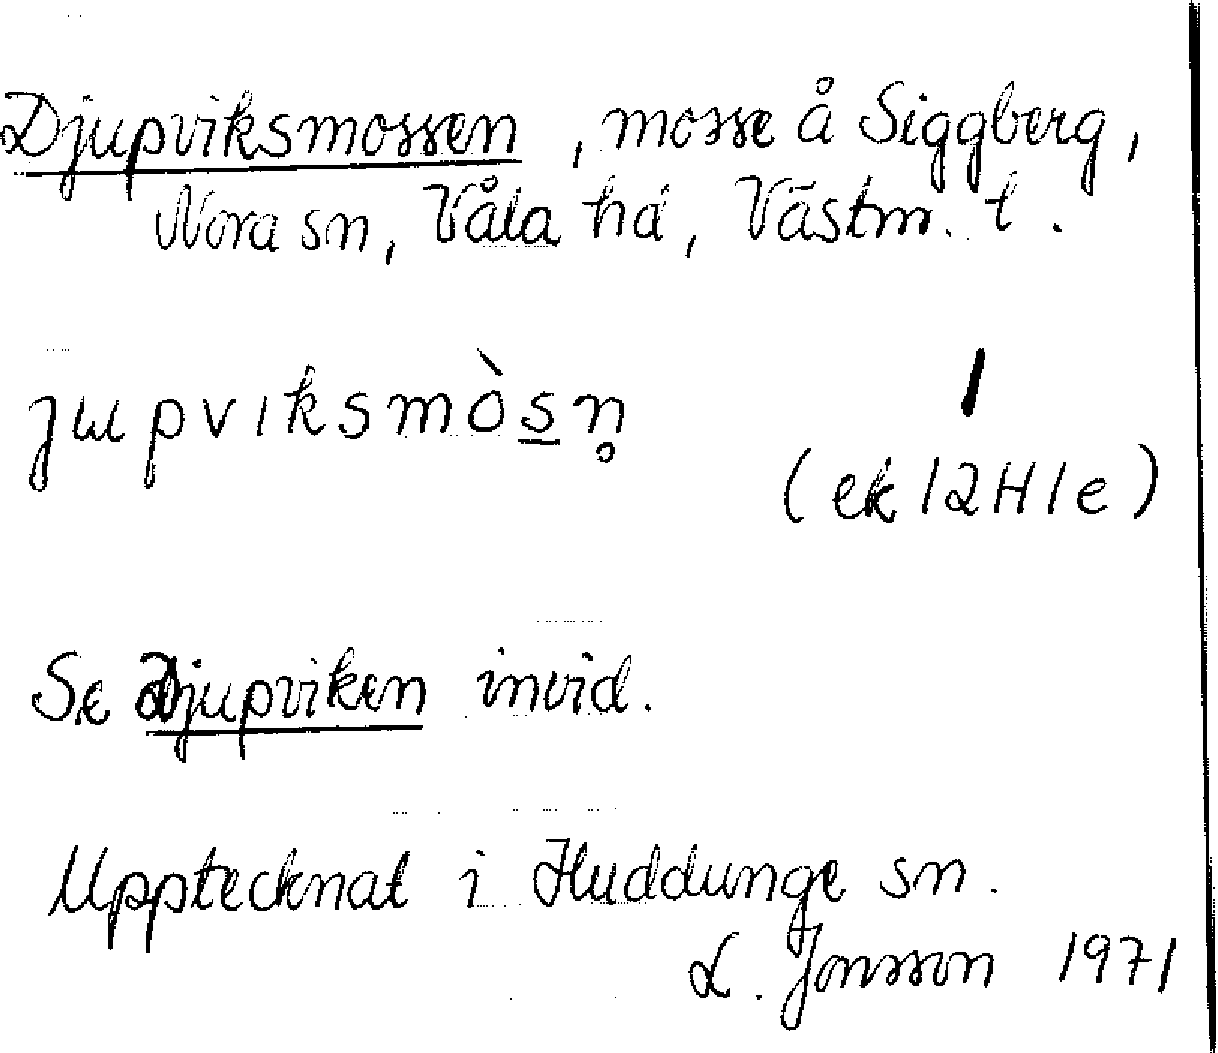 Djupviksmossen, mosse å Siggberg,
Nora sn, Våla hd, Västm. l.
jɯpvıksmòs̲n̥
(ek 12H1e)
Se Djupviken invid.
Upptecknat i Huddunge sn.
L. Jonsson 1971